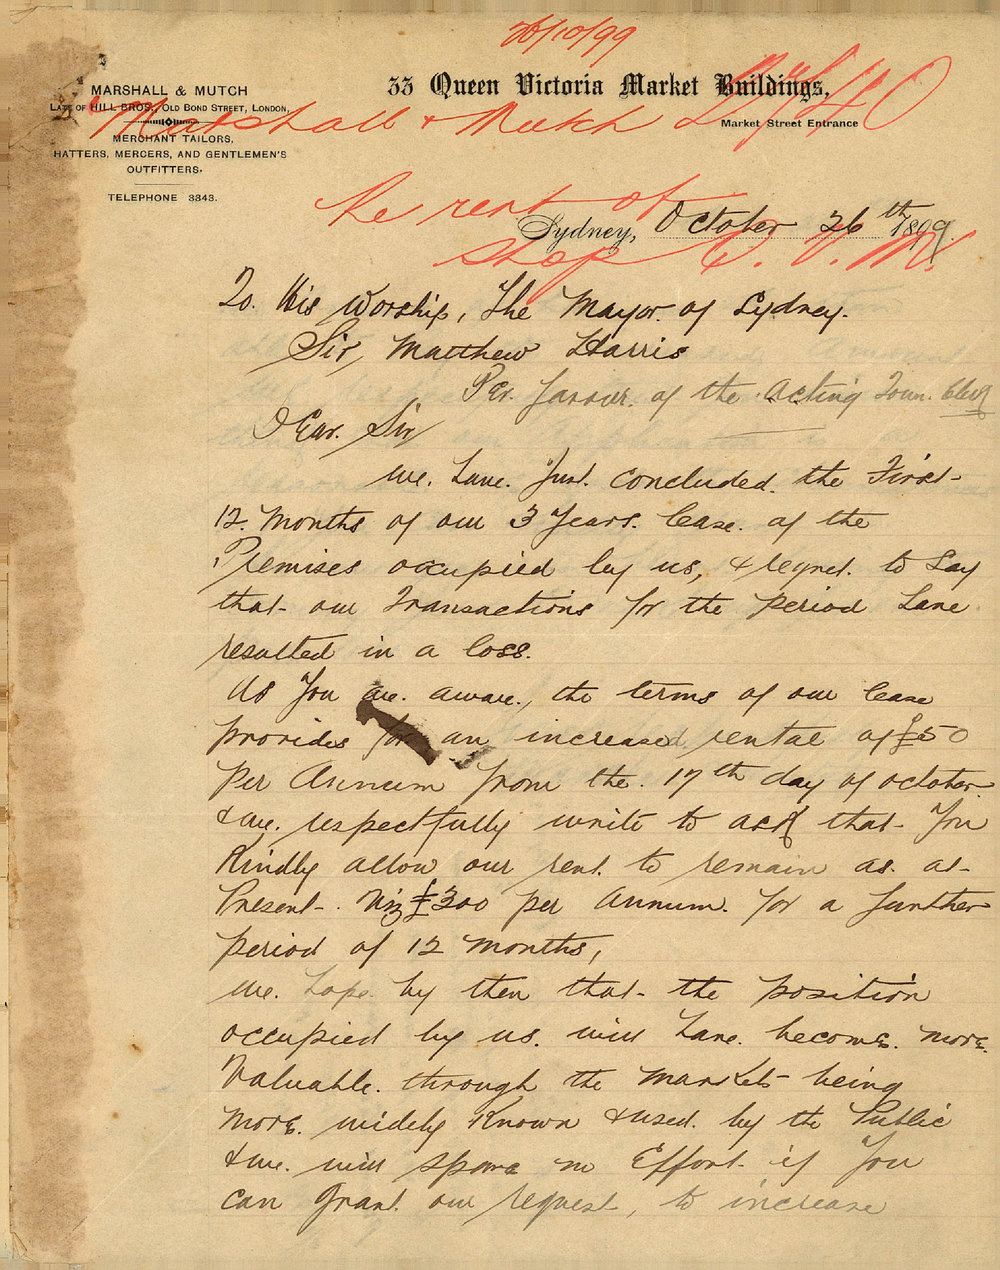 26/10/99
MARSHALL & MUTCH
LATE OF HILL BROS., OLD BOND STREET, LONDON,
MERCHANT TAILORS,
HATTERS, MERCERS, AND GENTLEMEN'S
OUTFITTERS.
TELEPHONE 3343.
33 Queen Victoria Market Buildings,
Market Street Entrance
Marshall & Mutch
Re rent of
shop Q. V. M.
Sydney, October 26th 1899.
To. His Worship, The Mayor of Sydney.
Sir, Matthew Harris
Per. favour. of the Acting Town. Clerk
Dear. Sir
we. have. just. concluded. the First-
12. Months of our 3 Years. lease. of the
Premises occupied by us, & regret. to say
that- our Transactions for the period have
resulted in a loss.
As You are. aware, the terms of our lease
provides for an increased rental of £50
per Annum from the. 17th day of october
& we. respectfully write to ask that- You
Kindly allow our rent. to remain as. at-
Present-. viz £300 per Annum. for a further
period of 12 months,
we. hope. by then that- the position
occupied by us. will have. become. more.
Valuable. through the markets- being
more. widely Known & used. by the Public
& we. will spare no Effort- if You
can grant. our request, to increase